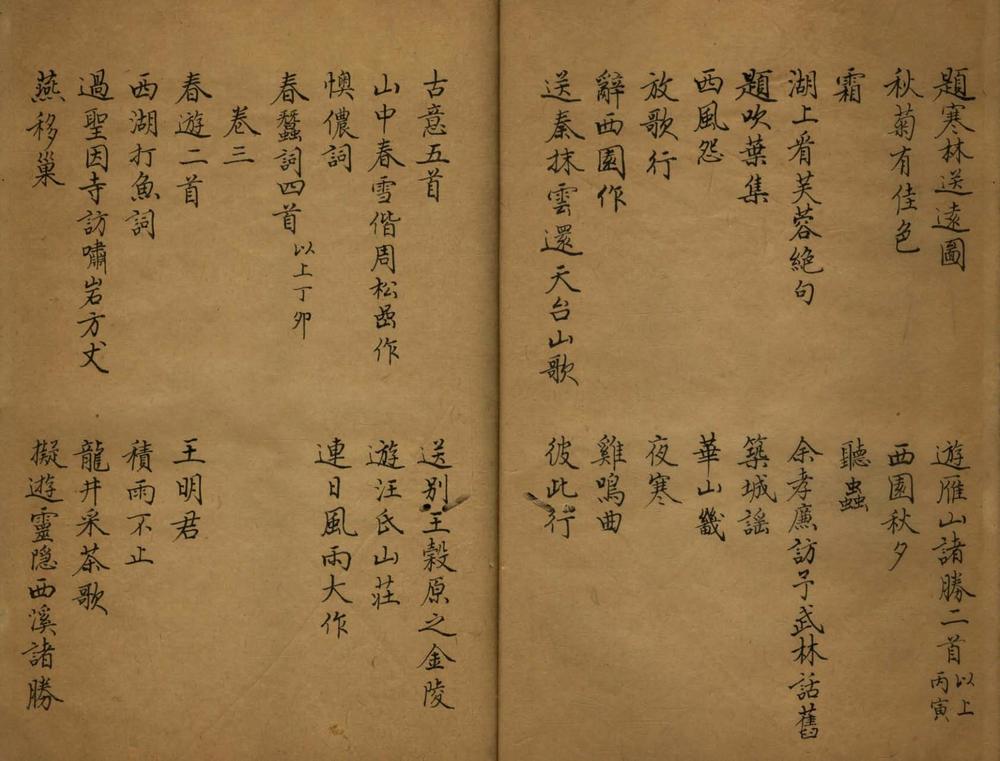 題寒林送遠圖 遊雁山諸勝二首 以上丙寅
秋菊有佳色 西園秋夕
霜 聽蟲
湖上看芙蓉絕句 余孝廉訪予武林話舊
題吹葉集 築城謠
西風怨 華山畿
放歌行 夜寒
辭西園作 雞鳴曲
送秦抹雲還天台山歌 彼此行
古意五首 送别王穀原之金陵
山中春雪偕周松嵒作 遊汪氏山莊
懊儂詞 連日風雨大作
春蠶詞四首 以上丁卯
卷三
春遊二首 王明君
西湖打魚詞 積雨不止
過聖因寺訪嘯岩方丈 龍井采茶歌
燕移巢 擬遊靈隱西溪諸勝